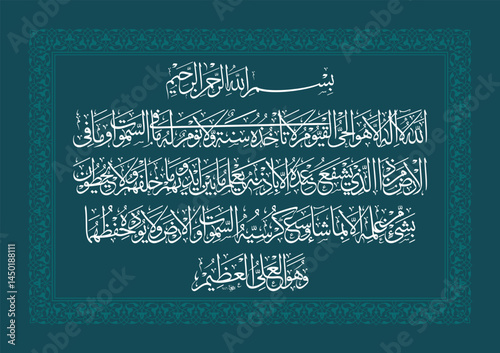 بِسْمِ اللهِ الرَّحْمٰنِ الرَّحِيْمِ
اَللهُ لَا اِلٰهَ اِلَّا هُوَ الْحَيُّ الْقَيُّوْمُ لَا تَأْخُذُهُ سِنَةٌ وَلَا نَوْمٌ لَهُ مَا فِي السَّمٰوَاتِ وَمَا فِي
الْاَرْضِ مَنْ ذَا الَّذِيْ يَشْفَعُ عِنْدَهُ اِلَّا بِاِذْنِهِ يَعْلَمُ مَا بَيْنَ اَيْدِيْهِمْ وَمَا خَلْفَهُمْ وَلَا يُحِيْطُوْنَ
بِشَيْءٍ مِنْ عِلْمِهِ اِلَّا بِمَا شَاءَ وَسِعَ كُرْسِيُّهُ السَّمٰوَاتِ وَالْاَرْضَ وَلَا يَؤُدُهُ حِفْظُهُمَا
وَهُوَ الْعَلِيُّ الْعَظِيْمُ
Adobe Stock | #1450188111